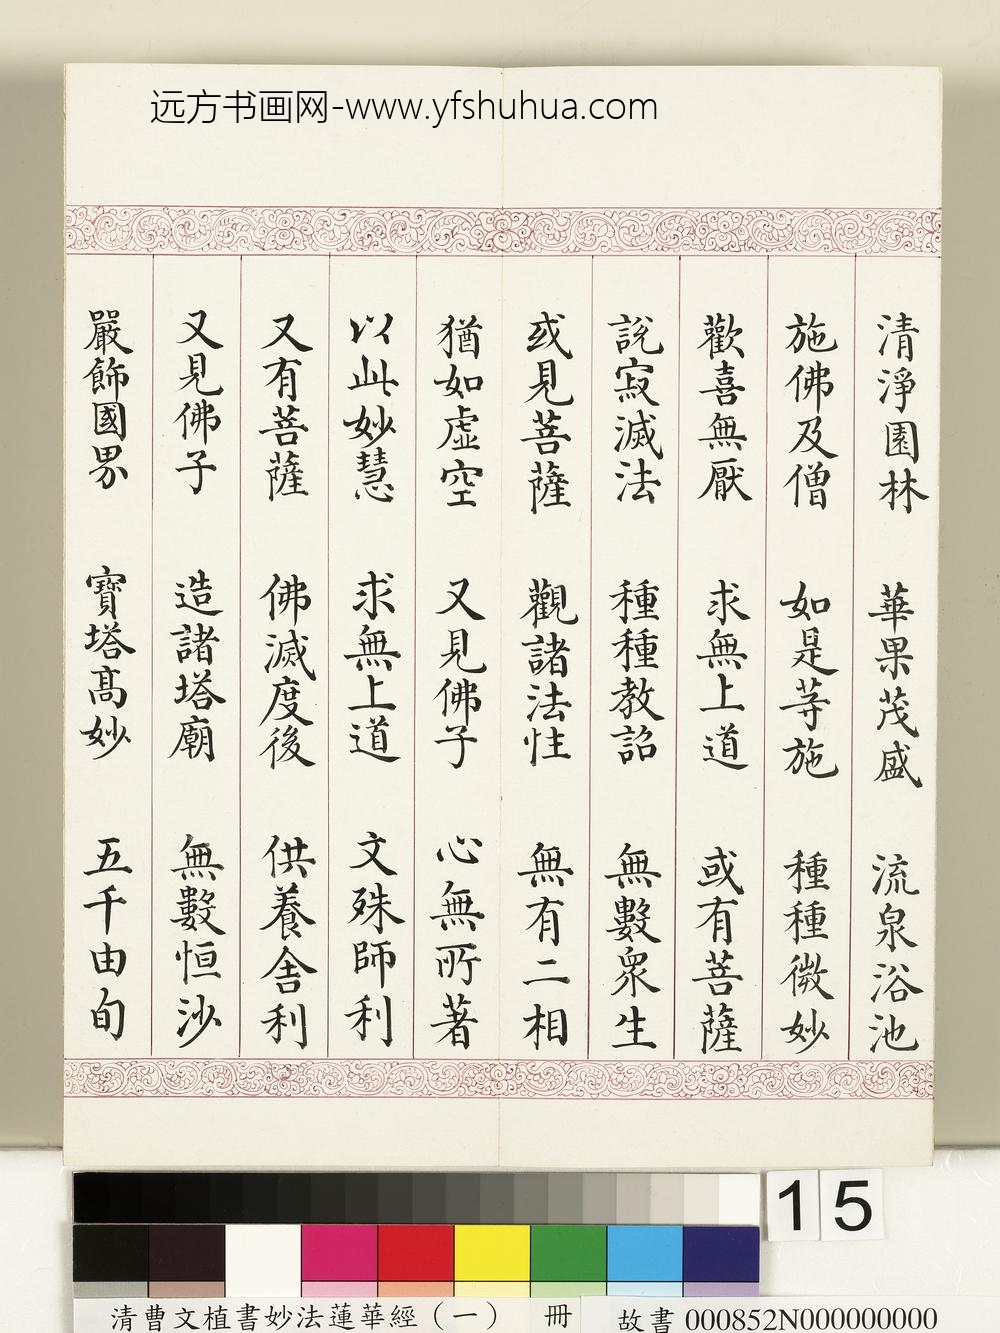 远方书画网-www.yfshuhua.com
清淨園林 華果茂盛 流泉浴池
施佛及僧 如是等施 種種微妙
歡喜無厭 求無上道 或有菩薩
說寂滅法 種種教詔 無數眾生
或見菩薩 觀諸法性 無有二相
猶如虛空 又見佛子 心無所著
以此妙慧 求無上道 文殊師利
又有菩薩 佛滅度後 供養舍利
又見佛子 造諸塔廟 無數恒沙
嚴飾國界 寶塔高妙 五千由旬
15
清曹文植書妙法蓮華經（一） 冊 故書 000852N000000000